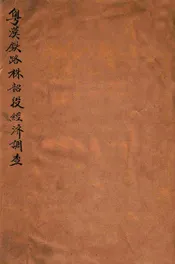 粤漢鉄路株韶段經濟調查